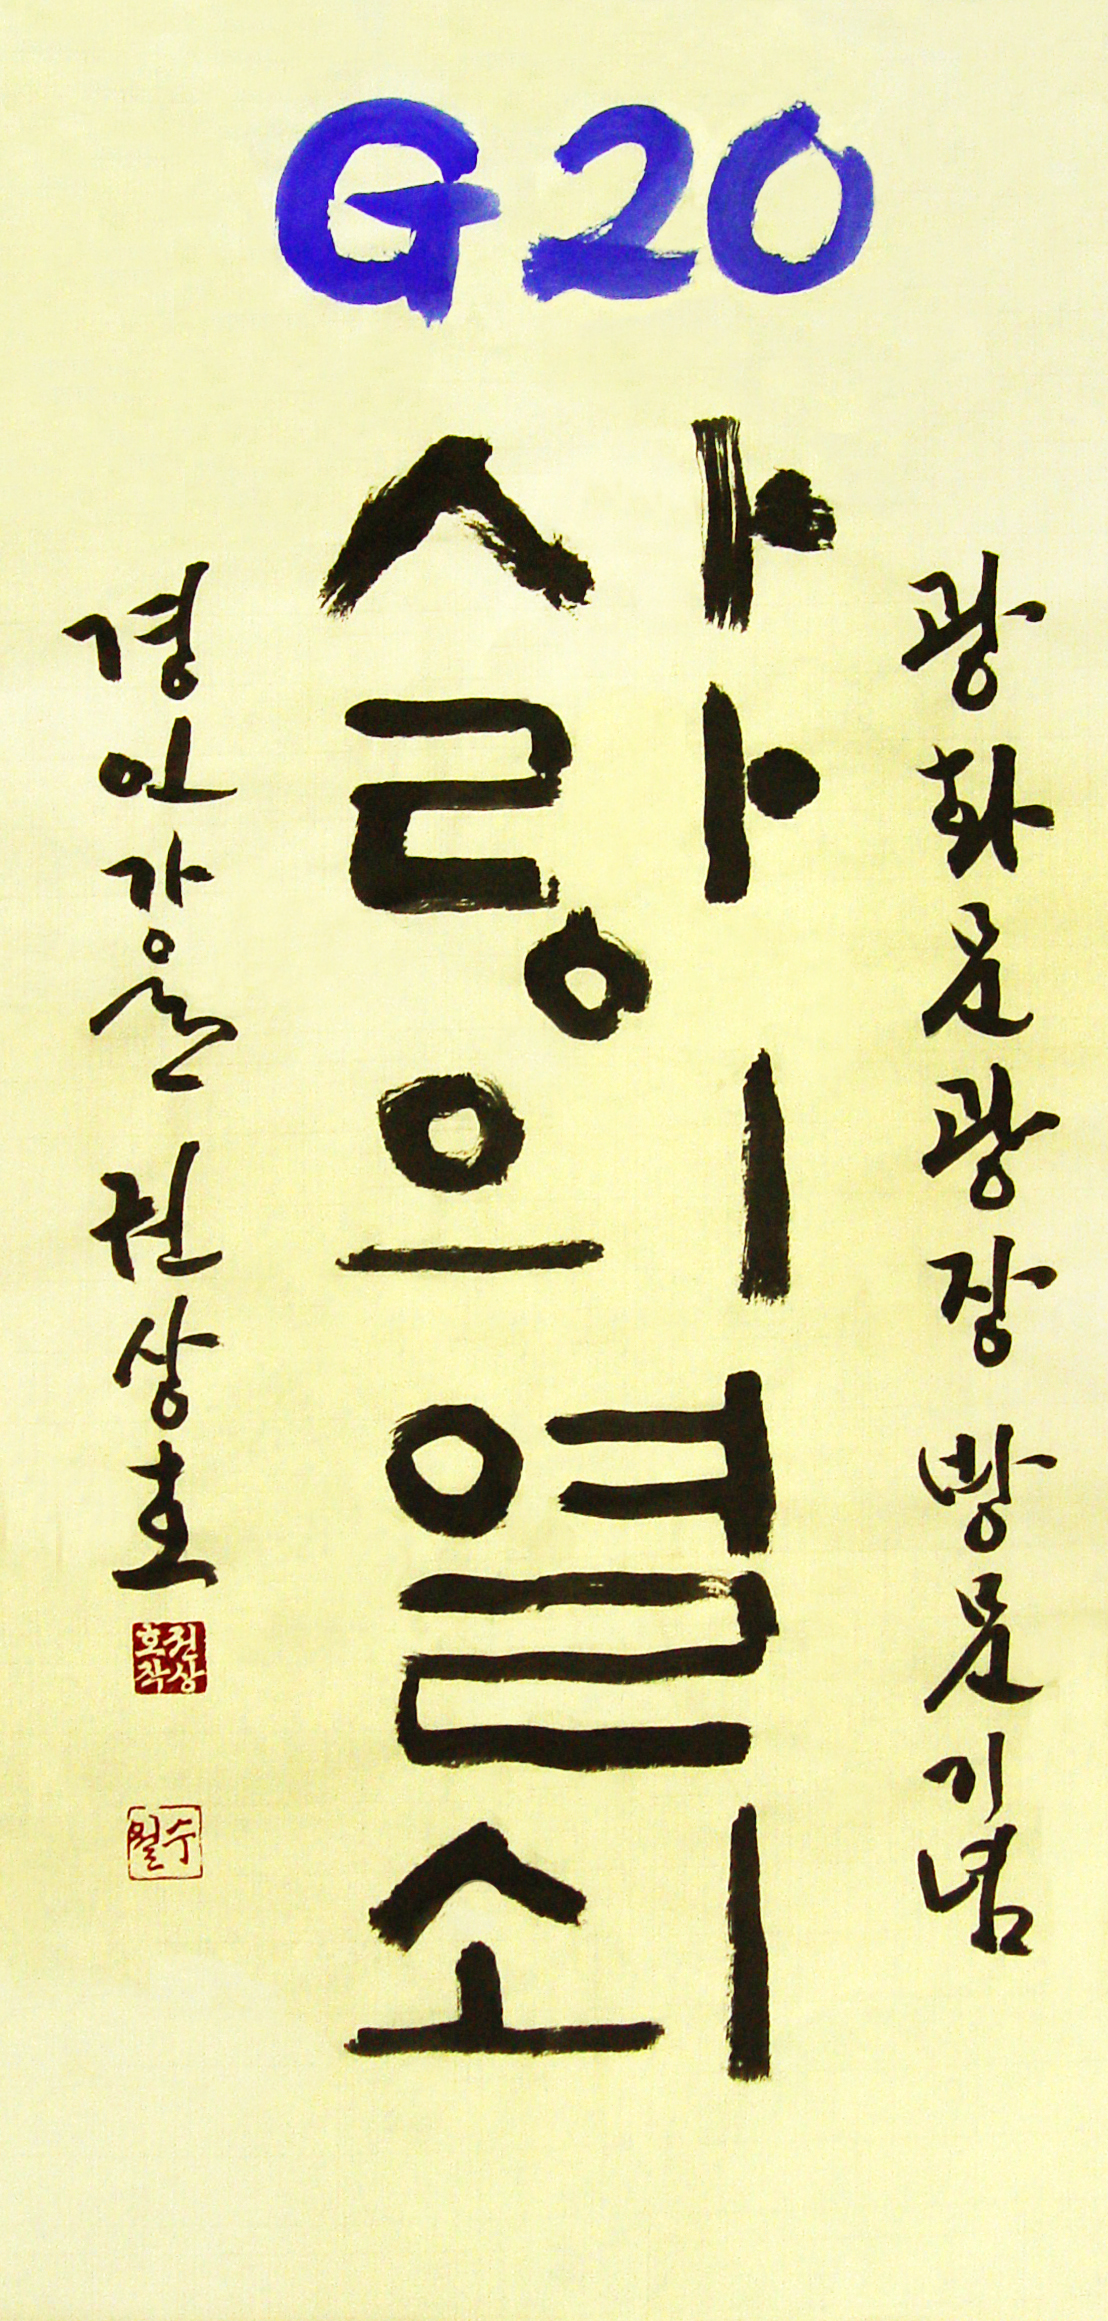 G20
사랑의열쇠
광화문광장 방문기념
경인가을 권상호
권상
호작
수월